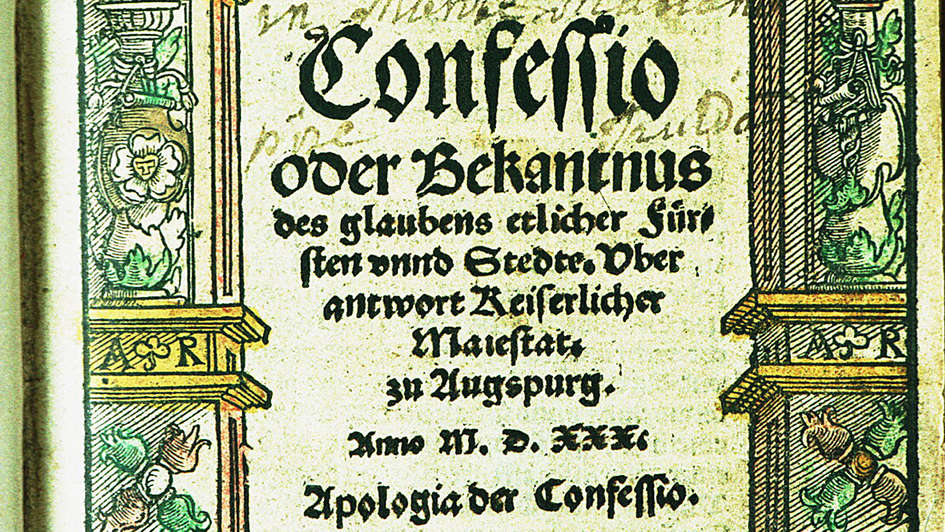 Confessio
oder Bekantnus
des glaubens etlicher Für⸗
sten vnnd Stedte. Vber
antwort Keiserlicher
Maiestat,
zu Augspurg.
Anno M. D. XXX.
Apologia der Confessio.
A R
A R